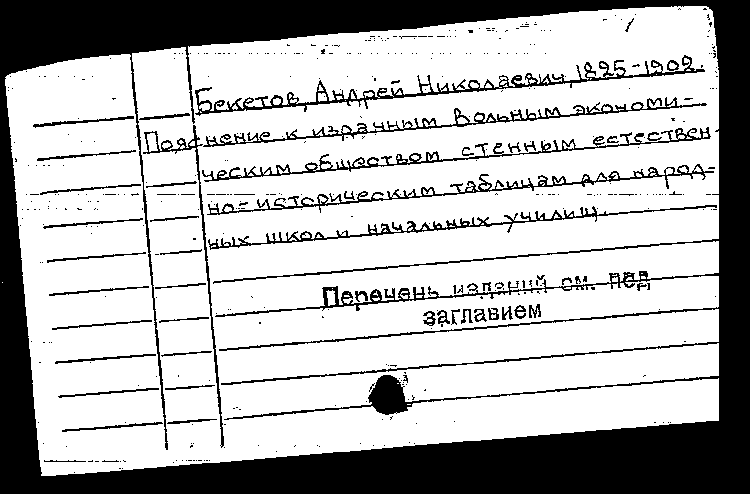 Бекетов, Андрей Николаевич, 1825-1902.
Пояснение к изданным Вольным экономи-
ческим обществом стенным естествен-
но=историческим таблицам для народ=
ных школ и начальных училищ.
Перечень изданий см. под
заглавием